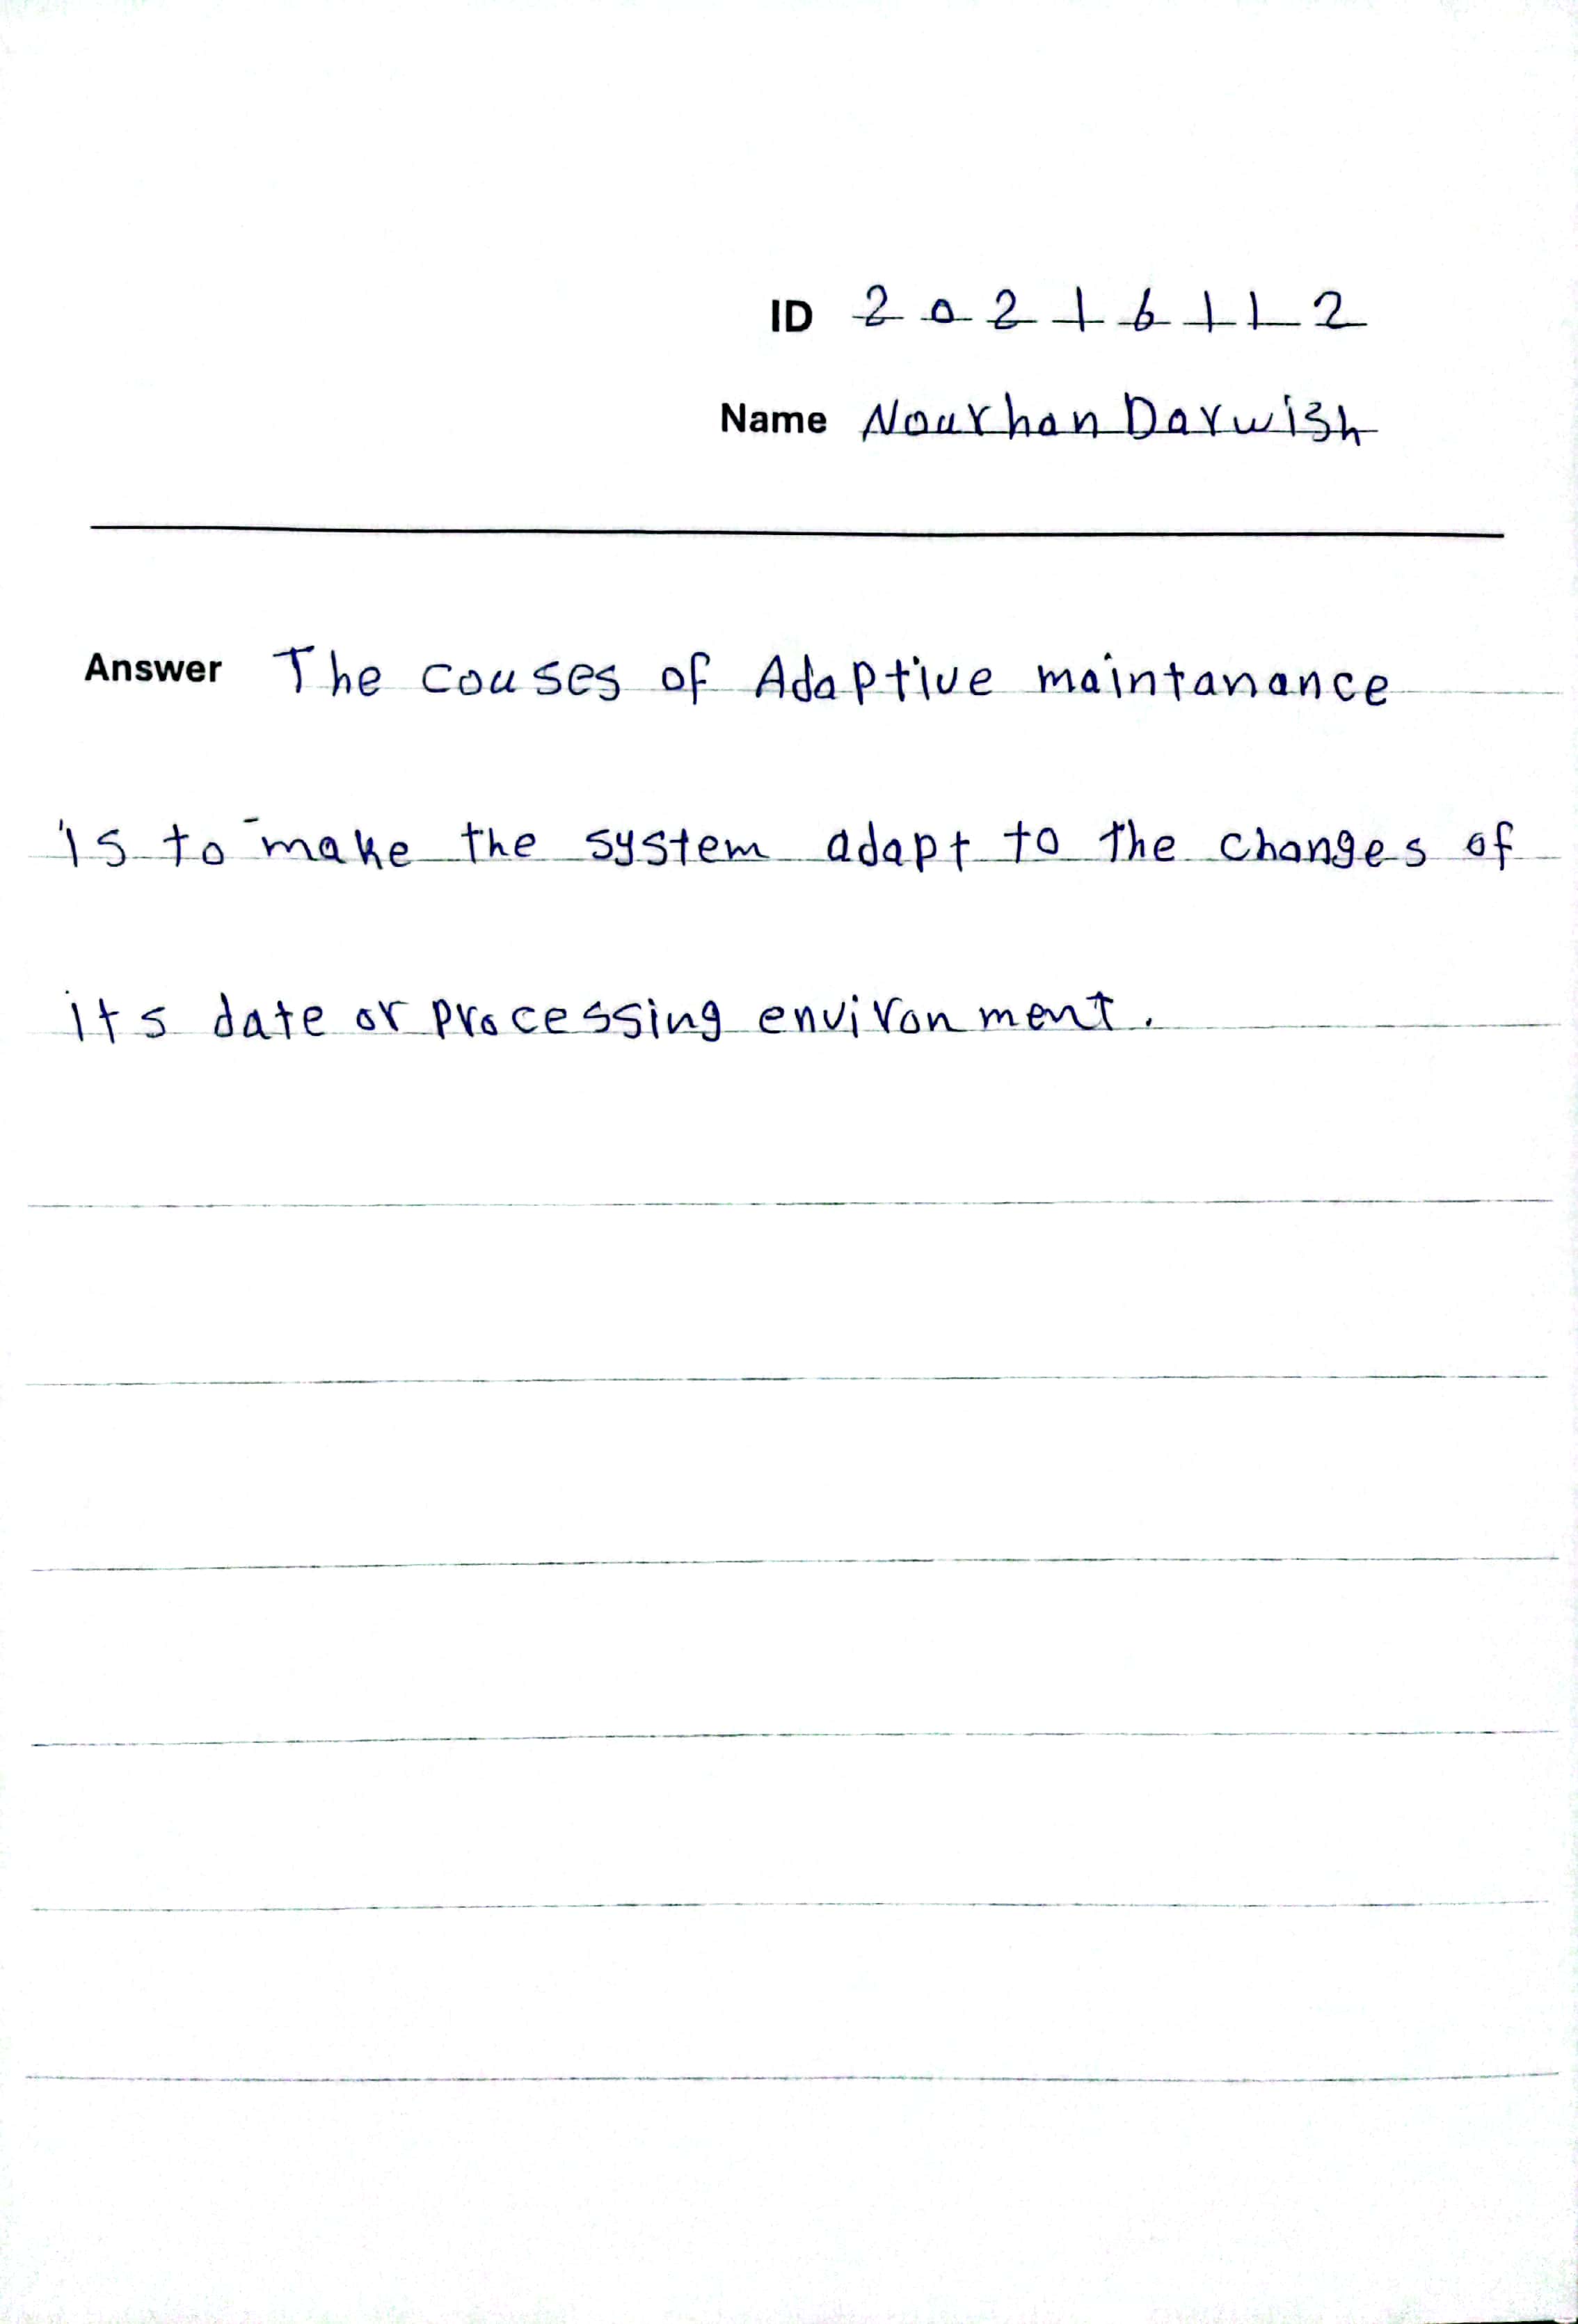 ID 20216112
Name Nourhan Darwish
Answer The couses of Adaptive maintanance
is to make the system adapt to the changes of
its date or processing environment.